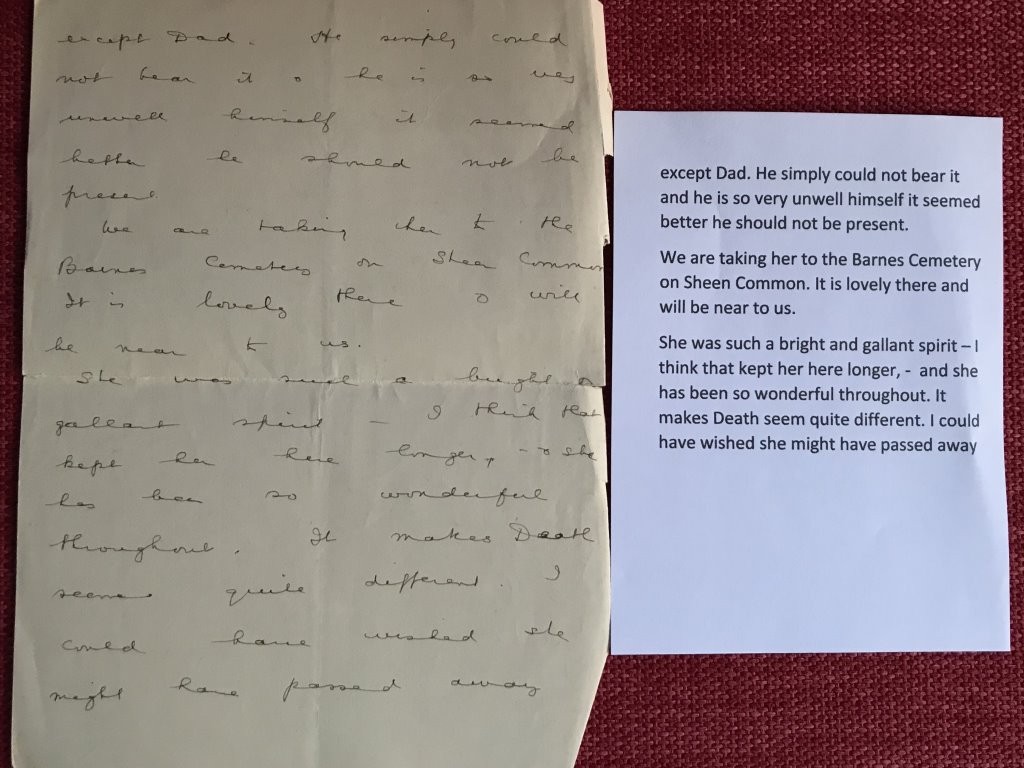 except Dad. He simply could
not bear it & he is so very
unwell himself it seemed
better he should not be
present.
We are taking her to the
Barnes Cemetery on Sheen Common
It is lovely there & will
be near to us.
She was such a bright &
gallant spirit – I think that
kept her here longer, - & she
has been so wonderful
throughout. It makes Death
seem quite different. I
could have wished she
might have passed away
except Dad. He simply could not bear it
and he is so very unwell himself it seemed
better he should not be present.
We are taking her to the Barnes Cemetery
on Sheen Common. It is lovely there and
will be near to us.
She was such a bright and gallant spirit – I
think that kept her here longer, - and she
has been so wonderful throughout. It
makes Death seem quite different. I could
have wished she might have passed away